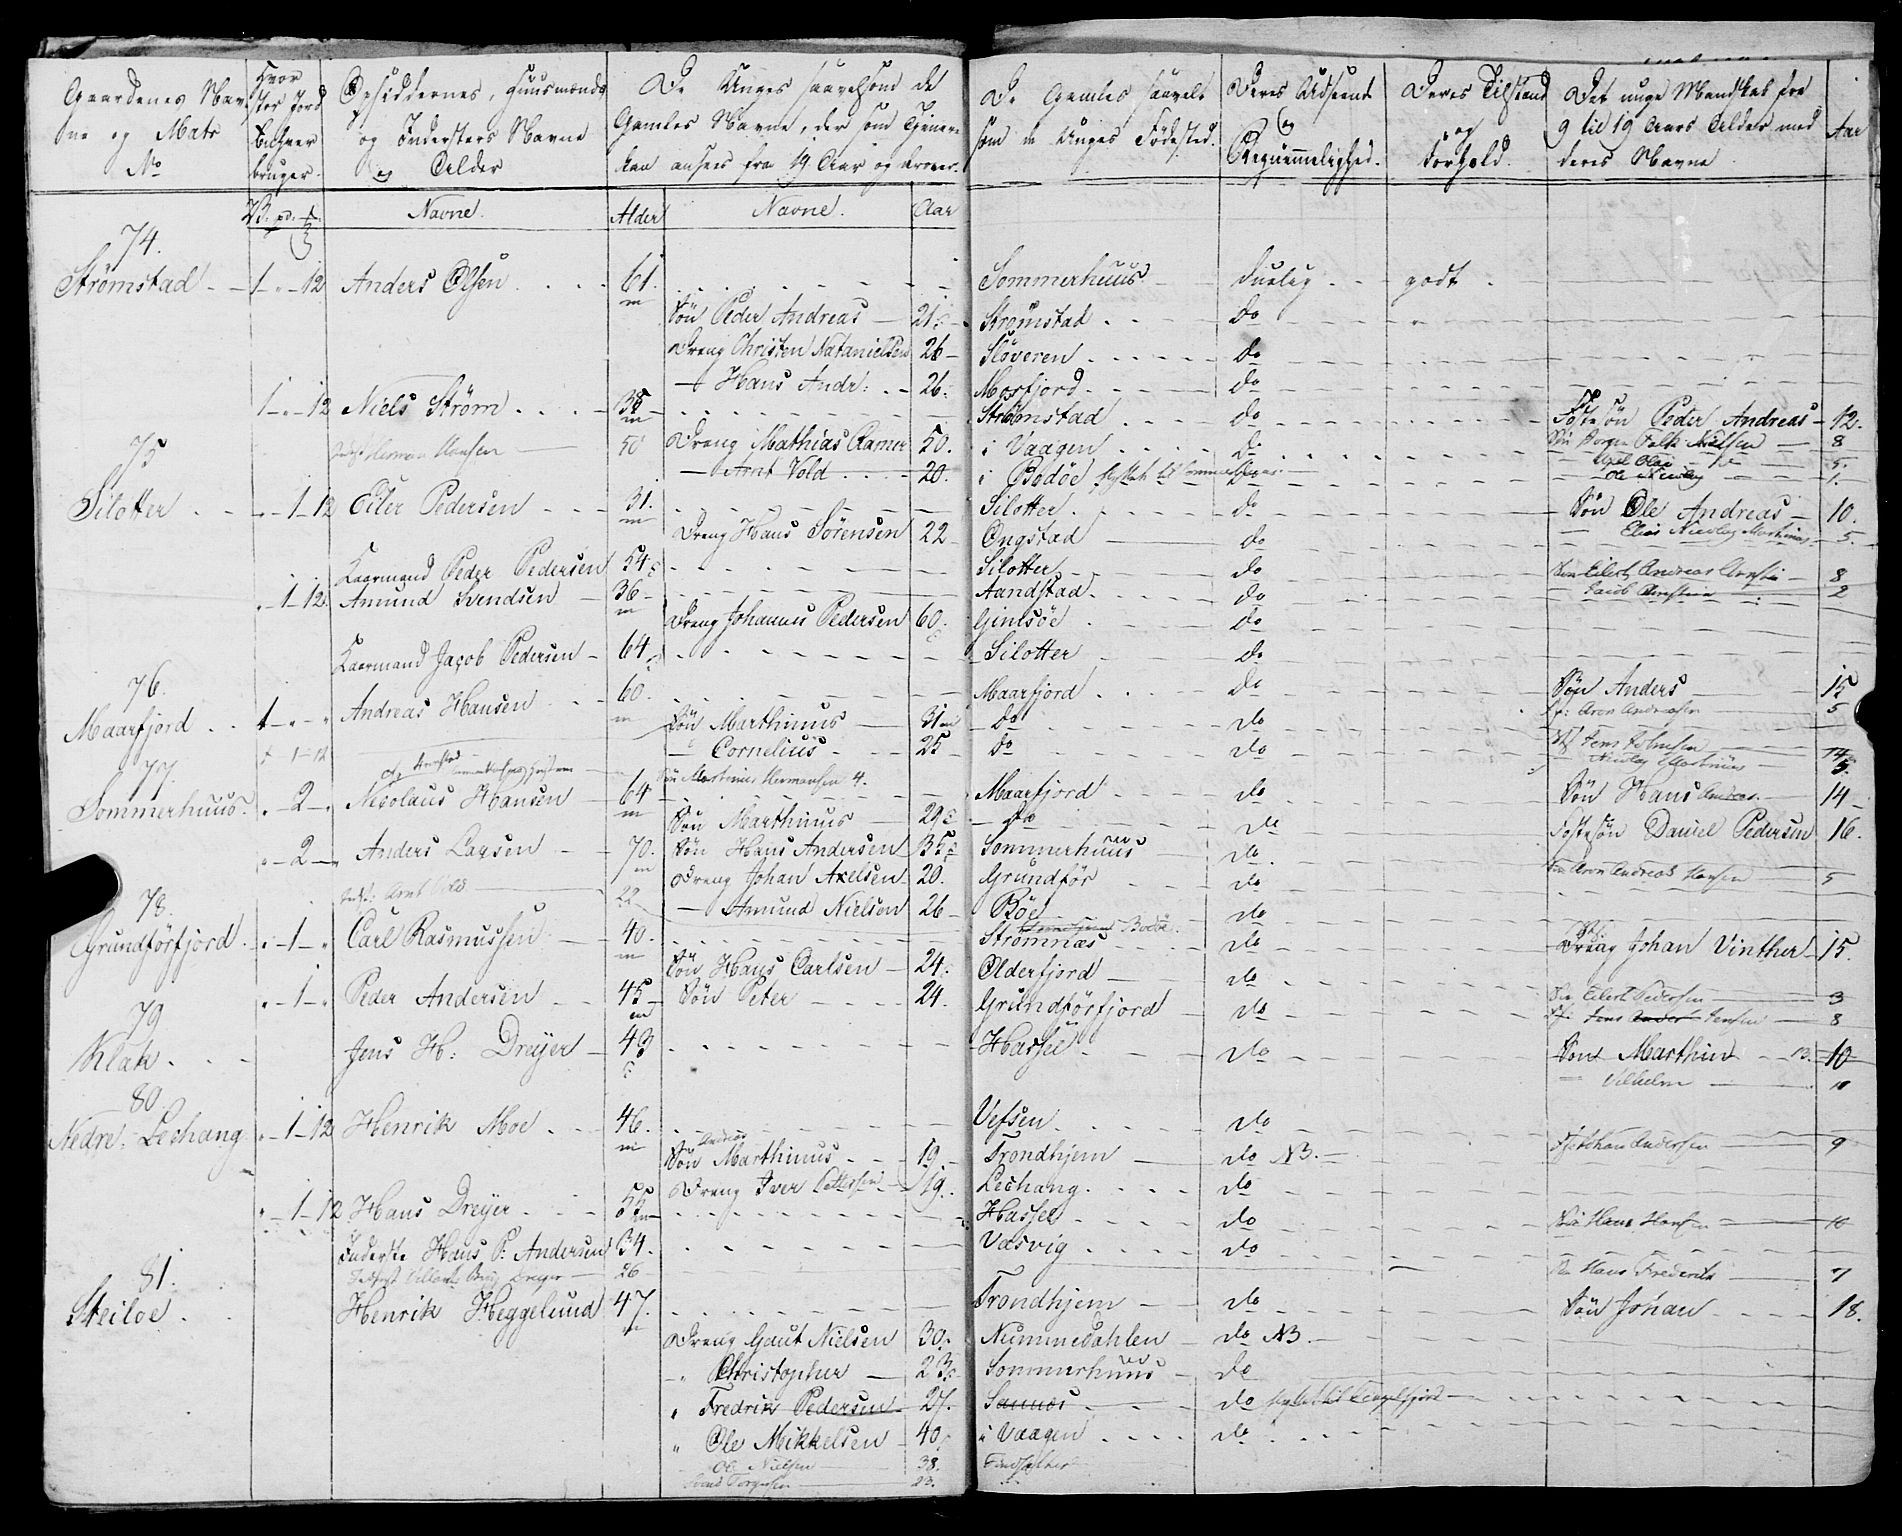 Gaardenes Navne og Matr No | Hvor stor Jord Enhver bruger | Opsiddernes, Huusmænds og Inderstes Navne og Alder | De Unges saavelsom de Gamles Navne, der som Tjenere kan ansees fra 19 Aar og derover | De Gamles saavelsom de Unges Fødested. | Deres Udseende og Beqvemmelighed. | Deres Tilstand og Forhold. | Det unge Mandskab fra 9 til 19 Aars Alder med deres Navne | Aar
V. pd. | Navne. | Alder | Navne. | Aar
74.
Strømstad 1 - " - 12 Anders Olsen 61. Sommerhuus duelig godt
m Søn Peder Andreas 21 Strømstad do
Dreng Christen Natanielsen 26 Sløveren do
Hans Andr: 26 Morfjord do
1 - " - 12 Niels Strøm 35 Strømstad do Fostersøn Peder Andreas 12.
75 Inds: Herman Hansen 50 Dreng Mathias Ramer 50. i Vaagen do Falk Nielsen 8
Arnt Vold 20. i Bodøe do 5.
Ole Nicolay 1.
Silotter 1 - 12 Eiler Pedersen 31. Silotter do Søn Ole Andreas 10.
m Dreng Hans Sørensen 22 Ongstad do Elias Nicolay Martinus 5.
Kaarmand Peder Pedersen 54 Silotter do Søn Eilert Andreas 8
" - 1 - 12 Amund Svendsen 36 Aandstad do Jacob 2
m Dreng Johannes Pedersen 60. Gimsøe do
Kaarmand Jacob Pedersen 64 Silotter do
76.
Maarfjord 1 - " - " Andreas Hansen 60. Maarfjord do Søn Anders 15
m Søn Marthinus 31 m do do Aron Andreasen 5
1 - 12 Cornelius 25 do do Jens 14
77. Søn Martinus Hermansen 4. Nicolay Martinus 5.
Sommerhuus. " - 2 - " Nicolaus Hansen 64 Maarfjord do Søn Hans Andreas 14
m Søn Marthinus 29 do do Fostersøn Daniel Pedersen 16.
" - 2 - " Anders Larsen 70. Søn Hans Andersen 35 Sommerhuus do
m Dreng Johan Axelsen 20. Grundfør do Søn Aron Andreas Hansen 5
78. Inds: Arnt Vold 22 Amund Nielsen 26 Böe do
Bodöe.
Grundförfjord. " - 1 - " Carl Rasmussen 40. Strömnæs do Dreng Johan Vinther 15.
m Søn Hans Carlsen 24 Olderfjord do
" - 1 - " Peder Andersen 45 Søn Peter 24. Grundförfjord do Søn Eilert Pedersen 3
79 m Jens Jensen 8
Klak Jens H: Dreyer 43 Hassel do Søn Marthin 13. 10
Vilhelm 10
80.
Nedre: Lechang " - 1 - 12 Henrik Moe 46. Vefsen do
m Andreas
Søn Marthinus 19. Trondhjem do NB. Andersen 9
Dreng Iver Pettersen 19. Lechang do
" - 1 - 12 Hans Dreyer 55 Hassel do Søn Hans Hansen 10
Inderste Hans P. Andersen 34. Vasvig do
81. Dreyer 26 Søn Hans Frederik 7
Steiloe Henrik Heggelund 47. Trondhjem do Søn Johan 18.
m Dreng Gaut Nielsen 30. Nummedahlen do NB.
" Christopher 23 Sommerhuus do
" Fredrik Pedersen 27. Sannæs do
" Ole Mikkelsen 40 i Vaagen do
Ole Nielsen 38.
Svend Torgersen 23.